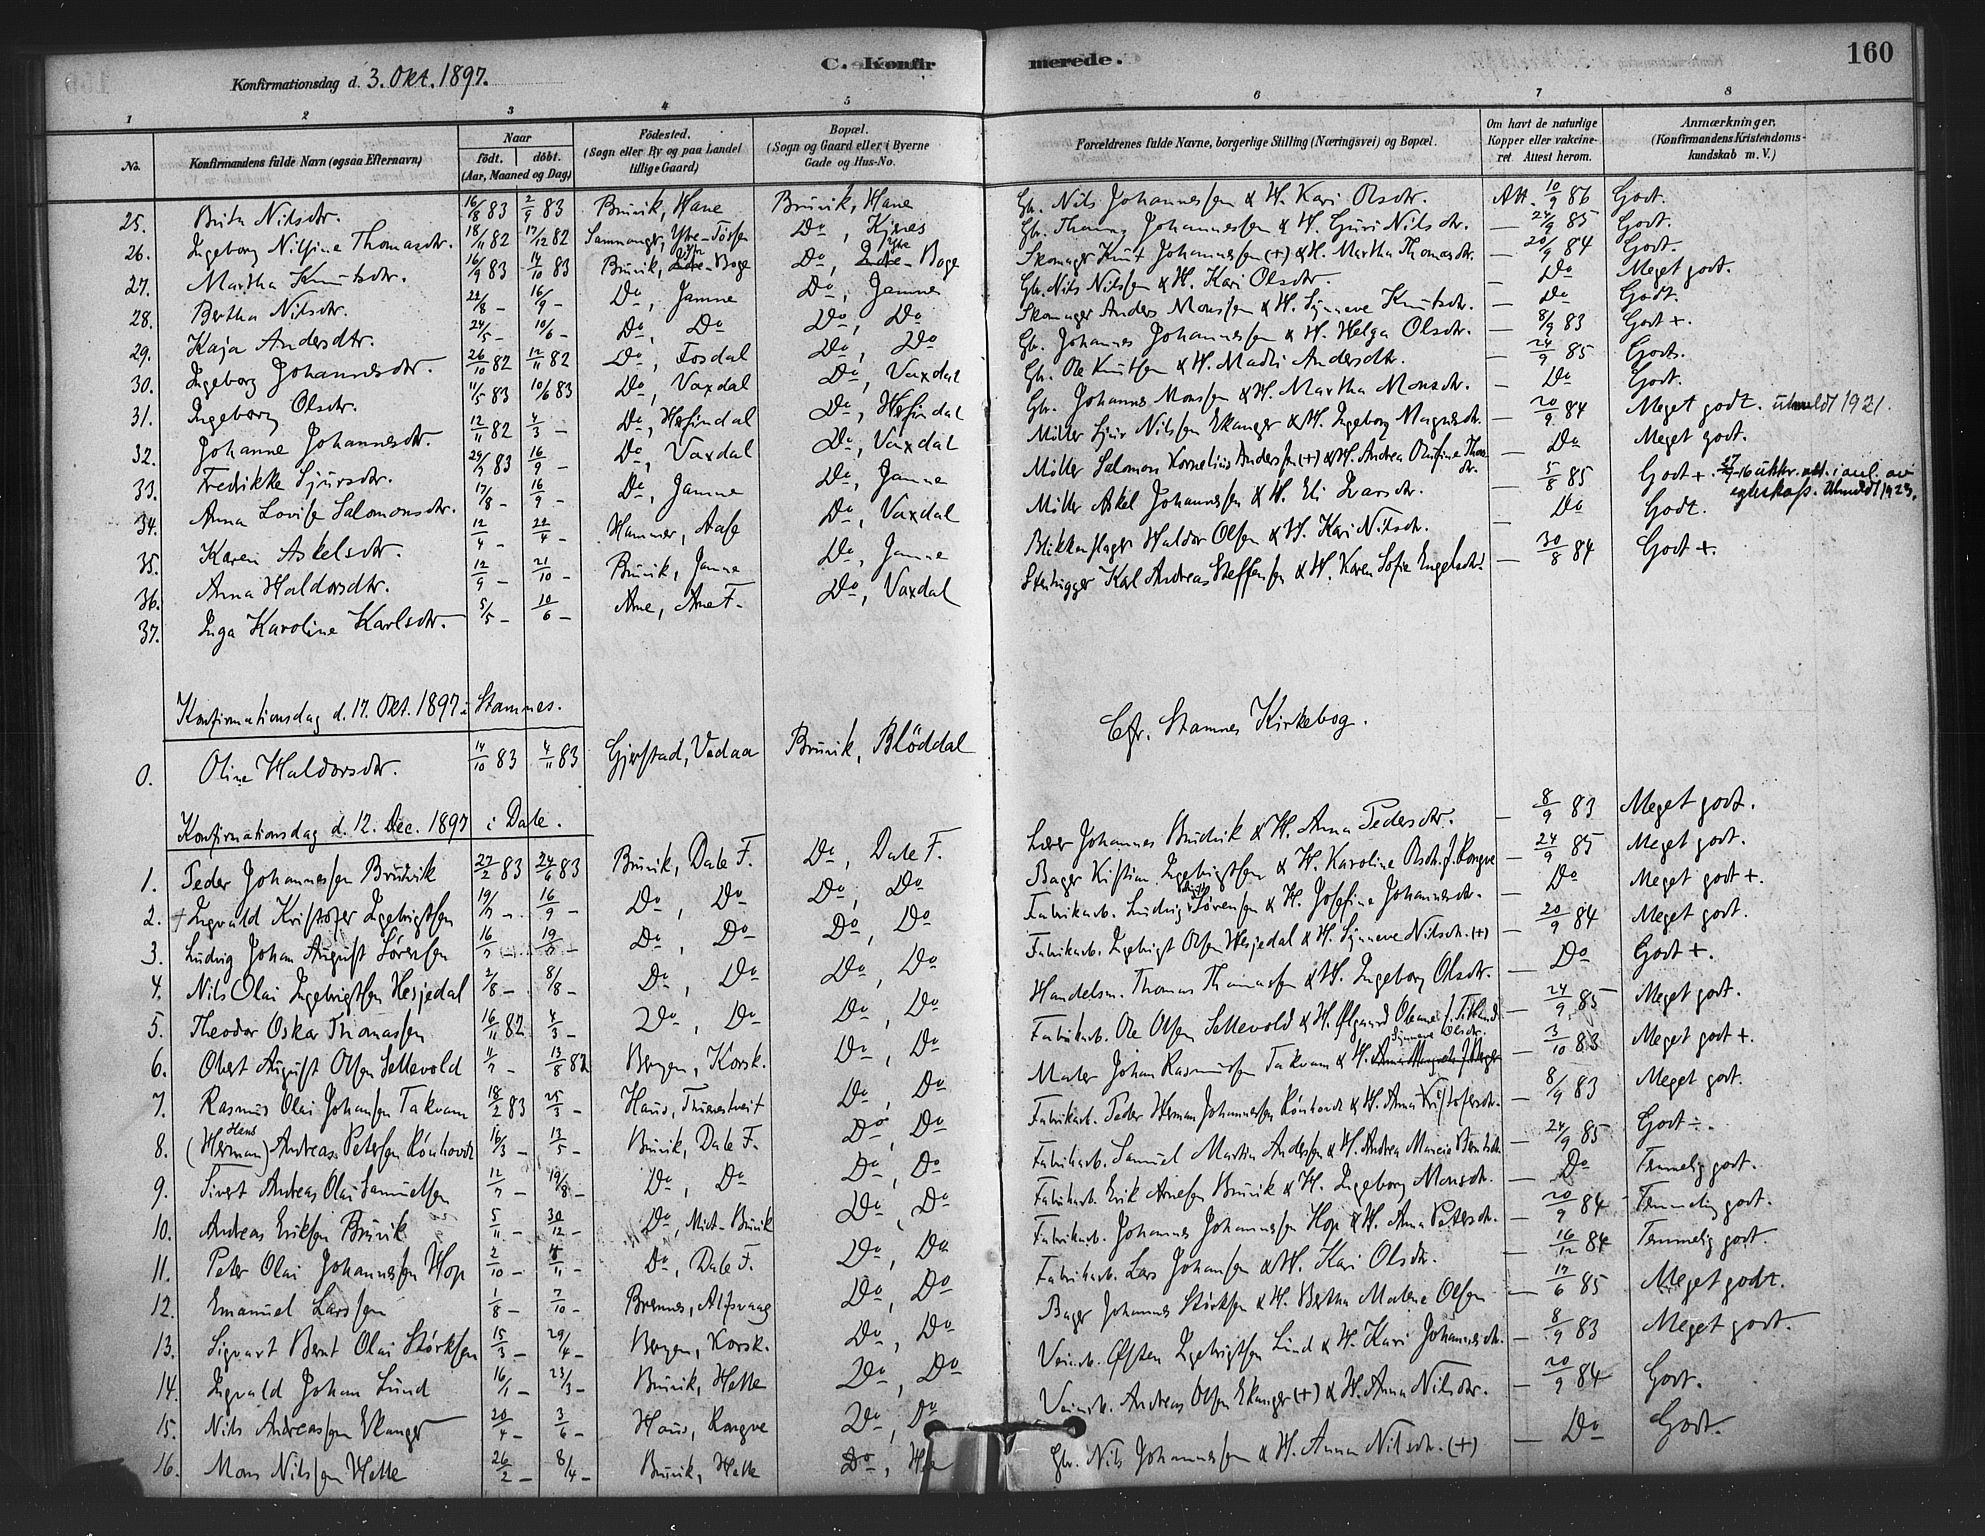 160
Konfirmationsdag d. 3. Okt. 1897.
C. Konfirmerede.
1 2 3 4 5 6 7 8
No.
Konfirmandens fulde Navn (ogsaa Efternavn)
Naar
født. døbt.
(Aar, Maaned og Dag)
Fødested.
(Sogn eller By og paa Landet tillige Gaard)
Bopæl.
(Sogn og Gaard eller i Byerne Gade og Hus-No.
Forældrenes fulde Navne, borgerlige Stilling (Næringsvei) og Bopæl.
Om havt de naturlige Kopper eller vakcineret. Attest herom.
Anmærkninger.
(Konfirmandens Kristendomskundskab m. V.)
25. Brita Nilsdtr. 16/8 83 2/9 83 Bruvik, Hane Bruvik, Hane Gbr. Nils Johannessen & H. Kari Olsdtr. Att. 10/9 86 Godt.
26. Ingeborg Nilsine Thomasdtr. 18/11 82 17/12 82 Samnanger, Ytre-Tössen Do, Kjenes Gbr. Thomas Johannessen & H. Guri Nilsdtr. — 24/9 85 Godt.
27. Martha Knutsdtr. 16/9 83 14/10 83 Bruvik, Ytre-Boge Do, Ytre-Boge Skomager Knut Johannessen (+) & H. Martha Thomasdtr. — 20/9 84 Godt.
28. Bertha Nilsdtr. 22/8 — 16/9 — Do, Jamne Do, Jamne Gbr. Nils Nilssen & H. Kari Olsdtr. — Do Meget godt.
29. Kaja Andersdtr. 24/5 — 10/6 — Do, Do Do, Do Skomager Anders Monssen & H. Synneve Knutsdtr. — Do Godt.
30. Ingeborg Johannesdtr. 26/10 82 12/11 82 Do, Fosdal Do, Do Gbr. Johannes Johannessen & H. Helga Olsdtr. — 8/9 83 Godt +.
31. Ingeborg Olsdtr. 11/5 83 10/6 83 Do, Vaxdal Do, Vaxdal Gbr. Ole Knutsen & H. Madli Andersdtr. — 24/9 85 Godt.
32. Johanne Johannesdtr. 12/11 82 4/3 — Do, Hesjindal Do, Hesjindal Gbr. Johannes Monssen & H. Martha Monsdtr. — Do Godt.
33. Fredrikke Sjursdtr. 29/7 83 16/9 — Do, Vaxdal Do, Vaxdal Möller Sjur Nilssen Ekanger & H. Ingeborg Magnesdtr. — 20/9 84 Meget godt. Utmeldt 1921.
34. Anna Lovise Salomonsdtr. 17/8 — 16/9 — Do, Jamne Do, Jamne Möller Salomon Kornelius Anderssen (+) & H. Andrea Olufine Thomasdtr. — Do Meget godt.
35. Karen Askelsdtr. 12/4 — 22/4 — Hammer, Aase Do, Vaxdal Möller Askel Johannessen & H. Eli Ivarsdtr. — 5/8 85 Godt +. Utmeldt 1923.
36. Anna Haldorsdtr. 12/9 — 21/10 — Bruvik, Jamne Do, Jamne Blikkenslager Haldor Olsen & H. Kari Nilsdtr. — Do Godt.
37. Inga Karoline Karlsdtr. 5/5 — 10/6 — Arne, Arne F. Do, Vaxdal Stenhugger Karl Andreas Steffensen & H. Karen Sofie Engelsdtr. — 30/8 84 Godt +.
Konfirmationsdag d. 17. Okt. 1897 i Stamnes.
Cfr. Stamnes Kirkebog.
0. Oline Haldorsdtr. 14/10 83 4/11 83 Gjerstad, Vedaa Bruvik, Blöddal
Konfirmationsdag d. 12. Dec. 1897 i Dale.
1. Peder Johannessen Brudvik 27/2 83 24/6 83 Bruvik, Dale F. Do, Dale F. Lærer Johannes Brudvik & H. Anna Pedersdtr. — 8/9 83 Meget godt.
2. + Ingvald Kristofer Ingebrigtsen 19/7 — 16/9 — Do, Do Do, Do Bager Kristian Ingebrigtsen & H. Karoline Olsdtr. f. Rongve — 24/9 85 Meget godt.
3. Ludvig Johan August Sörensen 16/7 — 19/8 — Do, Do Do, Do Fabrikarb. Ludvig Sörensen & H. Josefine Johannesdtr. — Do Meget godt +.
4. Nils Olai Ingebrigtsen Hesjedal 2/8 — 8/8 — Do, Do Do, Do Fabrikarb. Ingebrigt Olsen Hesjedal & H. Synneve Nilsdtr. (+) — 20/9 84 Meget godt.
5. Theodor Oskar Thomassen 16/11 82 4/3 — Do, Do Do, Do Handelsm. Thomas Thomassen & H. Ingeborg Olsdtr. — Do Godt +.
6. Olert August Olsen Settevold 11/7 — 13/8 82 Bergen, Korsk. Do, Do Fabrikarb. Ole Olsen Settevold & H. Ølgaard Oleane f. Titland — 24/9 85 Meget godt.
7. Rasmus Olai Johansen Takvam 18/2 83 25/3 — Haus, Thunestveit Do, Do Maler Johan Rasmussen Takvam & H. Synneve Olsdtr. — 3/10 83 Meget godt +.
8. (Herman) Hans Andreas Petersen Rönhovde 16/3 — 13/5 — Bruvik, Dale F. Do, Do Fabrikarb. Peder Herman Johannessen Rönhovde & H. Anna Kristofersdtr. — 8/9 83 Meget godt.
9. Sivert Andreas Olai Samuelsen 12/7 — 19/8 — Do, Do Do, Do Fabrikarb. Samuel Martin Anderssen & H. Andrea Marcia Berntsdtr. — 24/9 85 Godt ÷.
10. Andreas Eriksen Bruvik 5/11 — 30/12 — Do, Midt-Bruvik Do, Do Fabrikarb. Erik Arnesen Bruvik & H. Ingeborg Monsdtr. — Do Temmelig godt.
11. Peter Olai Johannessen Hop 2/10 — 4/11 — Do, Dale F. Do, Do Fabrikarb. Johannes Johannessen Hop & H. Anna Petersdtr. — 20/9 84 Temmelig godt.
12. Emanuel Larssen 1/8 — 7/10 — Bremnes, Alfsvaag Do, Do Fabrikarb. Lars Johansen & H. Kari Olsdtr. — 16/12 84 Temmelig godt.
13. Sigvart Bernt Olai Størksen 15/3 — 29/4 — Bergen, Korsk. Do, Do Bager Johannes Størksen & H. Bertha Malene Olsen — 17/6 85 Meget godt.
14. Ingvald Johan Lund 16/1 — 23/3 — Bruvik, Helle Do, Do Veiarb. Øisten Ingebrigtsen Lund & H. Kari Johannesdtr. — 8/9 83 Meget godt.
15. Nils Andreassen Ekanger 20/4 — 3/6 — Haus, Rongve Do, Do Veiarb. Andreas Olsen Ekanger (+) & H. Anna Nilsdtr. — 20/9 84 Godt.
16. Mons Nilssen Helle 26/2 — 8/4 — Bruvik, Helle Do, Helle Gbr. Nils Johannessen & H. Anna Nilsdtr. (+) — Do Godt.